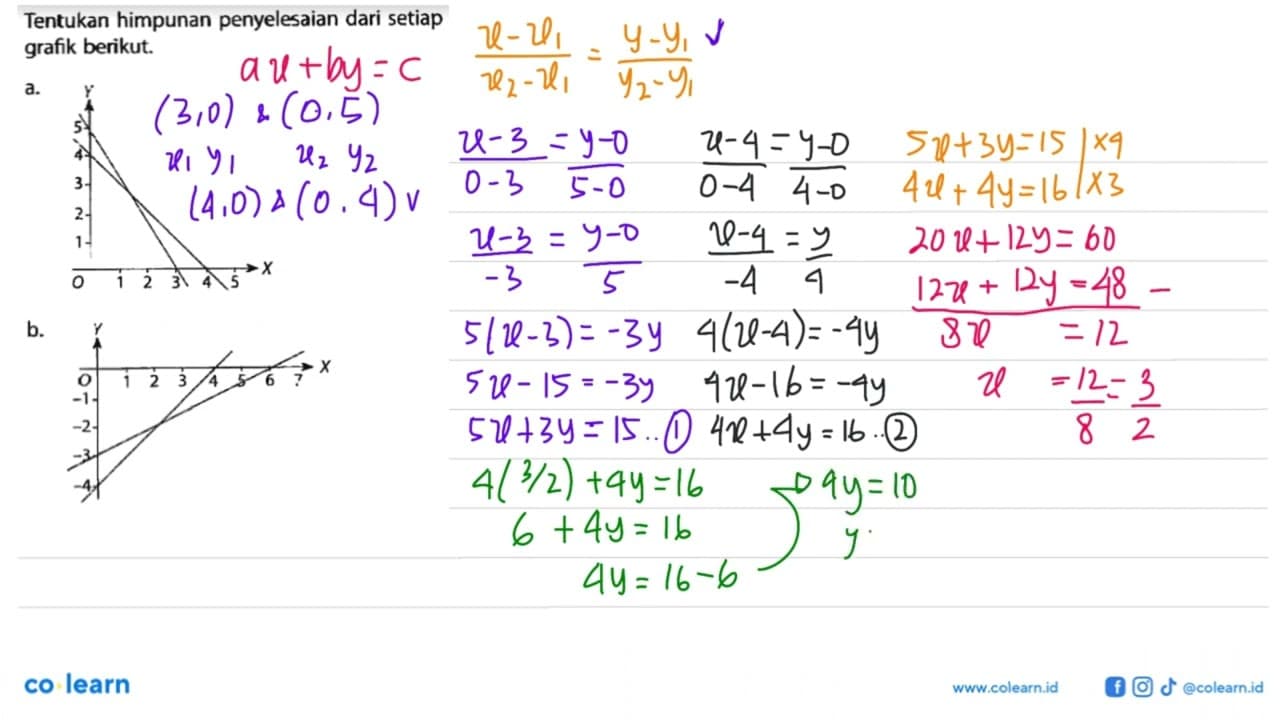 Tentukan himpunan penyelesaian dari setiap
grafik berikut.
ax + by = c
x - x₁ / x₂ - x₁ = y - y₁ / y₂ - y₁ ✓
a.
Y
5
4
3
2
1
0 1 2 3 4 5 X
(3,0) & (0,5)
x₁ y₁ x₂ y₂
(4,0) & (0,4) ✓
x - 3 / 0 - 3 = y - 0 / 5 - 0
x - 3 / -3 = y - 0 / 5
5(x - 3) = -3y
5x - 15 = -3y
5x + 3y = 15 .. ①
x - 4 / 0 - 4 = y - 0 / 4 - 0
x - 4 / -4 = y / 4
4(x - 4) = -4y
4x - 16 = -4y
4x + 4y = 16 .. ②
5x + 3y = 15 | ×4
4x + 4y = 16 | ×3
20x + 12y = 60
12x + 12y = 48 -
8x = 12
x = 12/8 = 3/2
4(3/2) + 4y = 16
6 + 4y = 16
4y = 16 - 6
4y = 10
y
b.
Y
0 1 2 3 4 5 6 7 X
-1
-2
-3
-4
co learn
www.colearn.id
@colearn.id